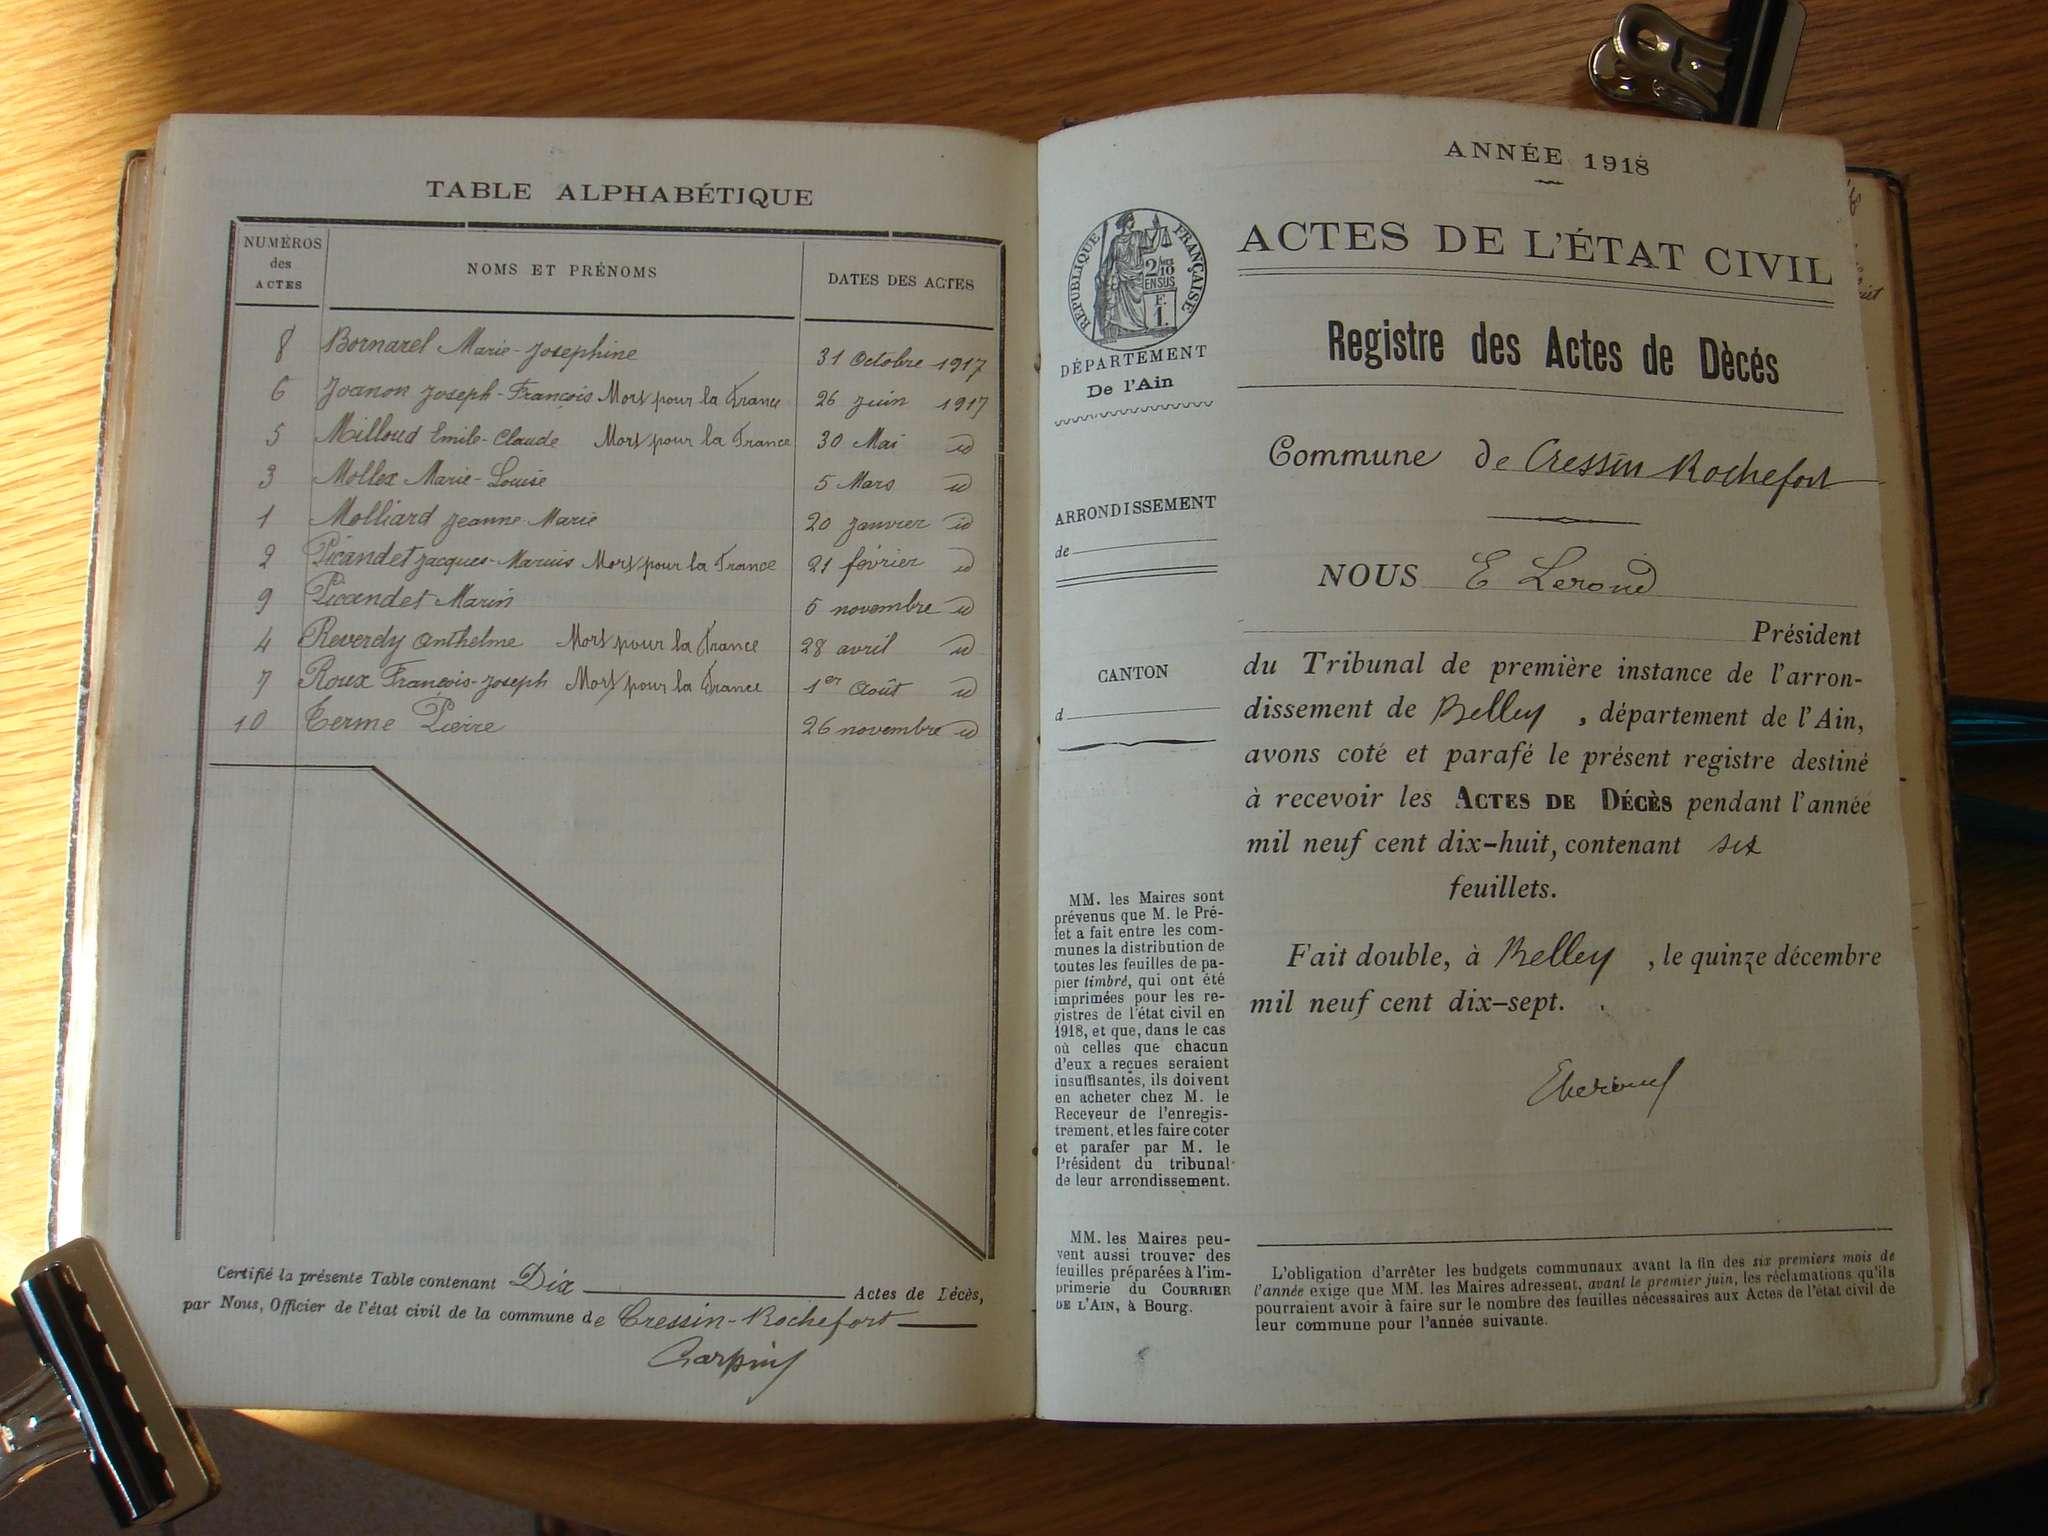 TABLE ALPHABÉTIQUE
NUMÉROS des ACTES
NOMS ET PRÉNOMS
DATES DES ACTES
8 Bornarel Marie-Josephine 31 Octobre 1917
6 Joanon Joseph-François Mort pour la France 26 juin 1917
5 Milloud Emile-Claude Mort pour la France 30 Mai id
3 Mollex Marie-Louise 5 Mars id
1 Molliard Jeanne-Marie 20 janvier id
2 Picandet Jacques-Marius Mort pour la France 21 février id
9 Picandet Marin 5 novembre id
4 Reverdy Anthelme Mort pour la France 28 avril id
7 Roux François-Joseph Mort pour la France 1er Août id
10 Terme Pierre 26 novembre id
Certifié la présente Table contenant Dix Actes de Décès,
par Nous, Officier de l'état civil de la commune de Cressin-Rochefort
ANNÉE 1918
ACTES DE L'ÉTAT CIVIL
RÉPUBLIQUE FRANÇAISE
2/10 EN SUS
F. 1.
DÉPARTEMENT
De l'Ain
Registre des Actes de Dècés
Commune de Cressin Rochefort
ARRONDISSEMENT
de
CANTON
d
NOUS E Leroud
Président
du Tribunal de première instance de l'arron-
dissement de Belley, département de l'Ain,
avons coté et parafé le présent registre destiné
à recevoir les ACTES DE DÉCÈS pendant l'année
mil neuf cent dix-huit, contenant six
feuillets.
Fait double, à Belley, le quinze décembre
mil neuf cent dix-sept.
MM. les Maires sont
prévenus que M. le Pré-
fet a fait entre les com-
munes la distribution de
toutes les feuilles de pa-
pier timbré, qui ont été
imprimées pour les re-
gistres de l'état civil en
1918, et que, dans le cas
où celles que chacun
d'eux a reçues seraient
insuffisantes, ils doivent
en acheter chez M. le
Receveur de l'enregis-
trement, et les faire coter
et parafer par M. le
Président du tribunal
de leur arrondissement.
MM. les Maires peu-
vent aussi trouver des
feuilles préparées à l'im-
primerie du COURRIER
DE L'AIN, à Bourg.
L'obligation d'arrêter les budgets communaux avant la fin des six premiers mois de
l'année exige que MM. les Maires adressent, avant le premier juin, les réclamations qu'ils
pourraient avoir à faire sur le nombre des feuilles nécessaires aux Actes de l'état civil de
leur commune pour l'année suivante.